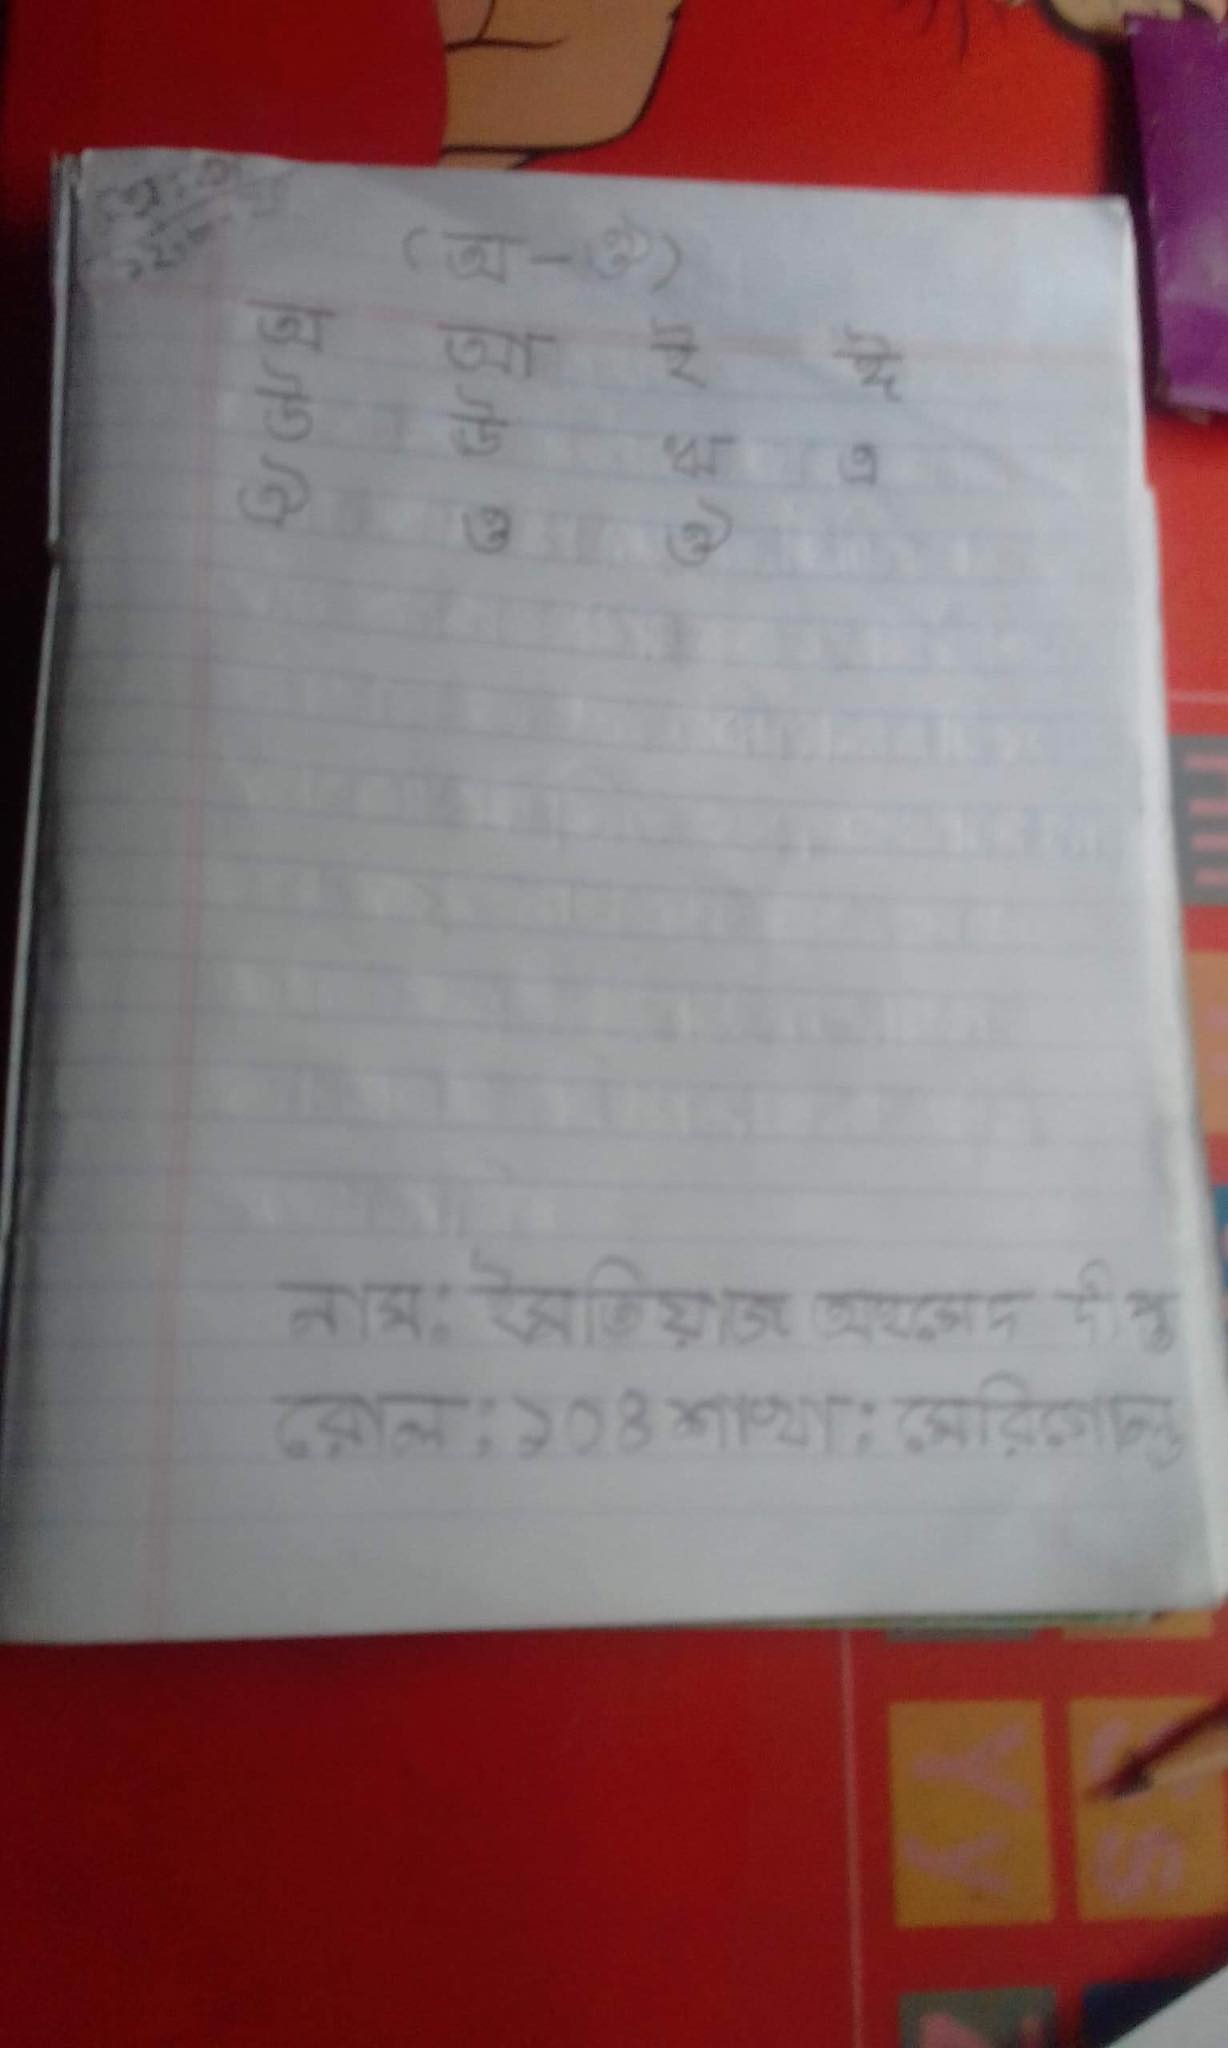 (অ - ঔ)
অ আ ই ঈ
উ ঊ ঋ এ
ঐ ও ঔ
নাম: ইমতিয়াজ আহমেদ দীপ্ত
রোল: ১০৪ শাখা: মেরিগোল্ড